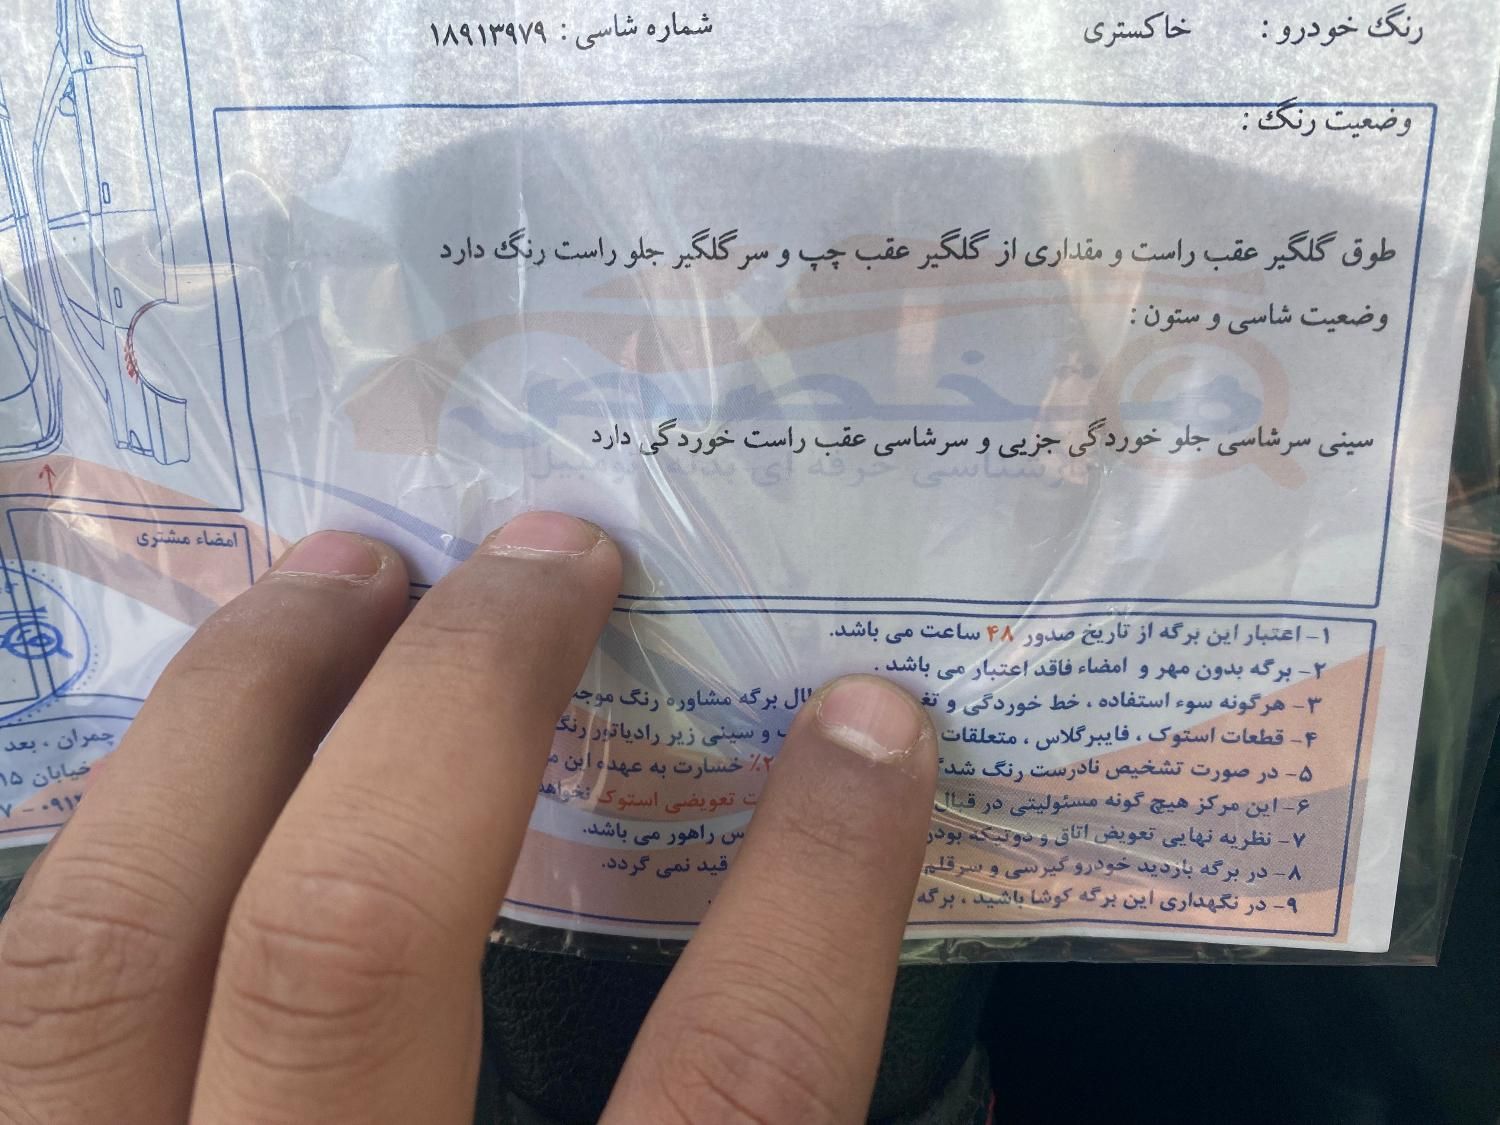 رنگ خودرو : خاکستری
شماره شاسی : ۱۸۹۱۳۹۷۹
وضعیت رنگ :
طوق گلگیر عقب راست و مقداری از گلگیر عقب چپ و سر گلگیر جلو راست رنگ دارد
وضعیت شاسی و ستون :
سینی سرشاسی جلو خوردگی جزیی و سرشاسی عقب راست خوردگی دارد
مخصص
کارشناسی حرفه ای بدنه اتومبیل
امضاء مشتری
۱- اعتبار این برگه از تاریخ صدور ۴۸ ساعت می باشد.
۲- برگه بدون مهر و امضاء فاقد اعتبار می باشد .
۳- هرگونه سوء استفاده ، خط خوردگی و برگه مشاوره رنگ
۴- قطعات استوک ، فایبرگلاس ، متعلقات و سینی زیر رادیاتور رنگ
۵- در صورت تشخیص نادرست رنگ خسارت به عهده این
۶- این مرکز هیچ گونه مسئولیتی در قبال تعویضی استوک
۷- نظریه نهایی تعویض اتاق و دوتیکه بودن راهور می باشد.
۸- در برگه بازدید خودرو گیرسی و قید نمی گردد.
۹- در نگهداری این برگه کوشا باشید ، برگه
چمران ، بعد
خیابان ۱۵